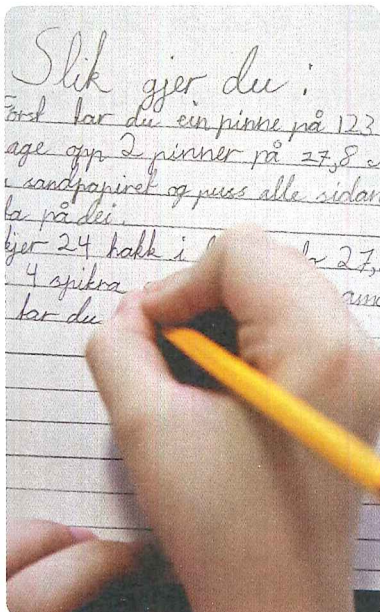 Slik gjer du:
Først tar du ein pinne på 123
age opp 2 pinner på 27,8
sandpapiret og puss alle sidan
på dei.
kjer 24 hakk i 27,
4 spikra
tar du